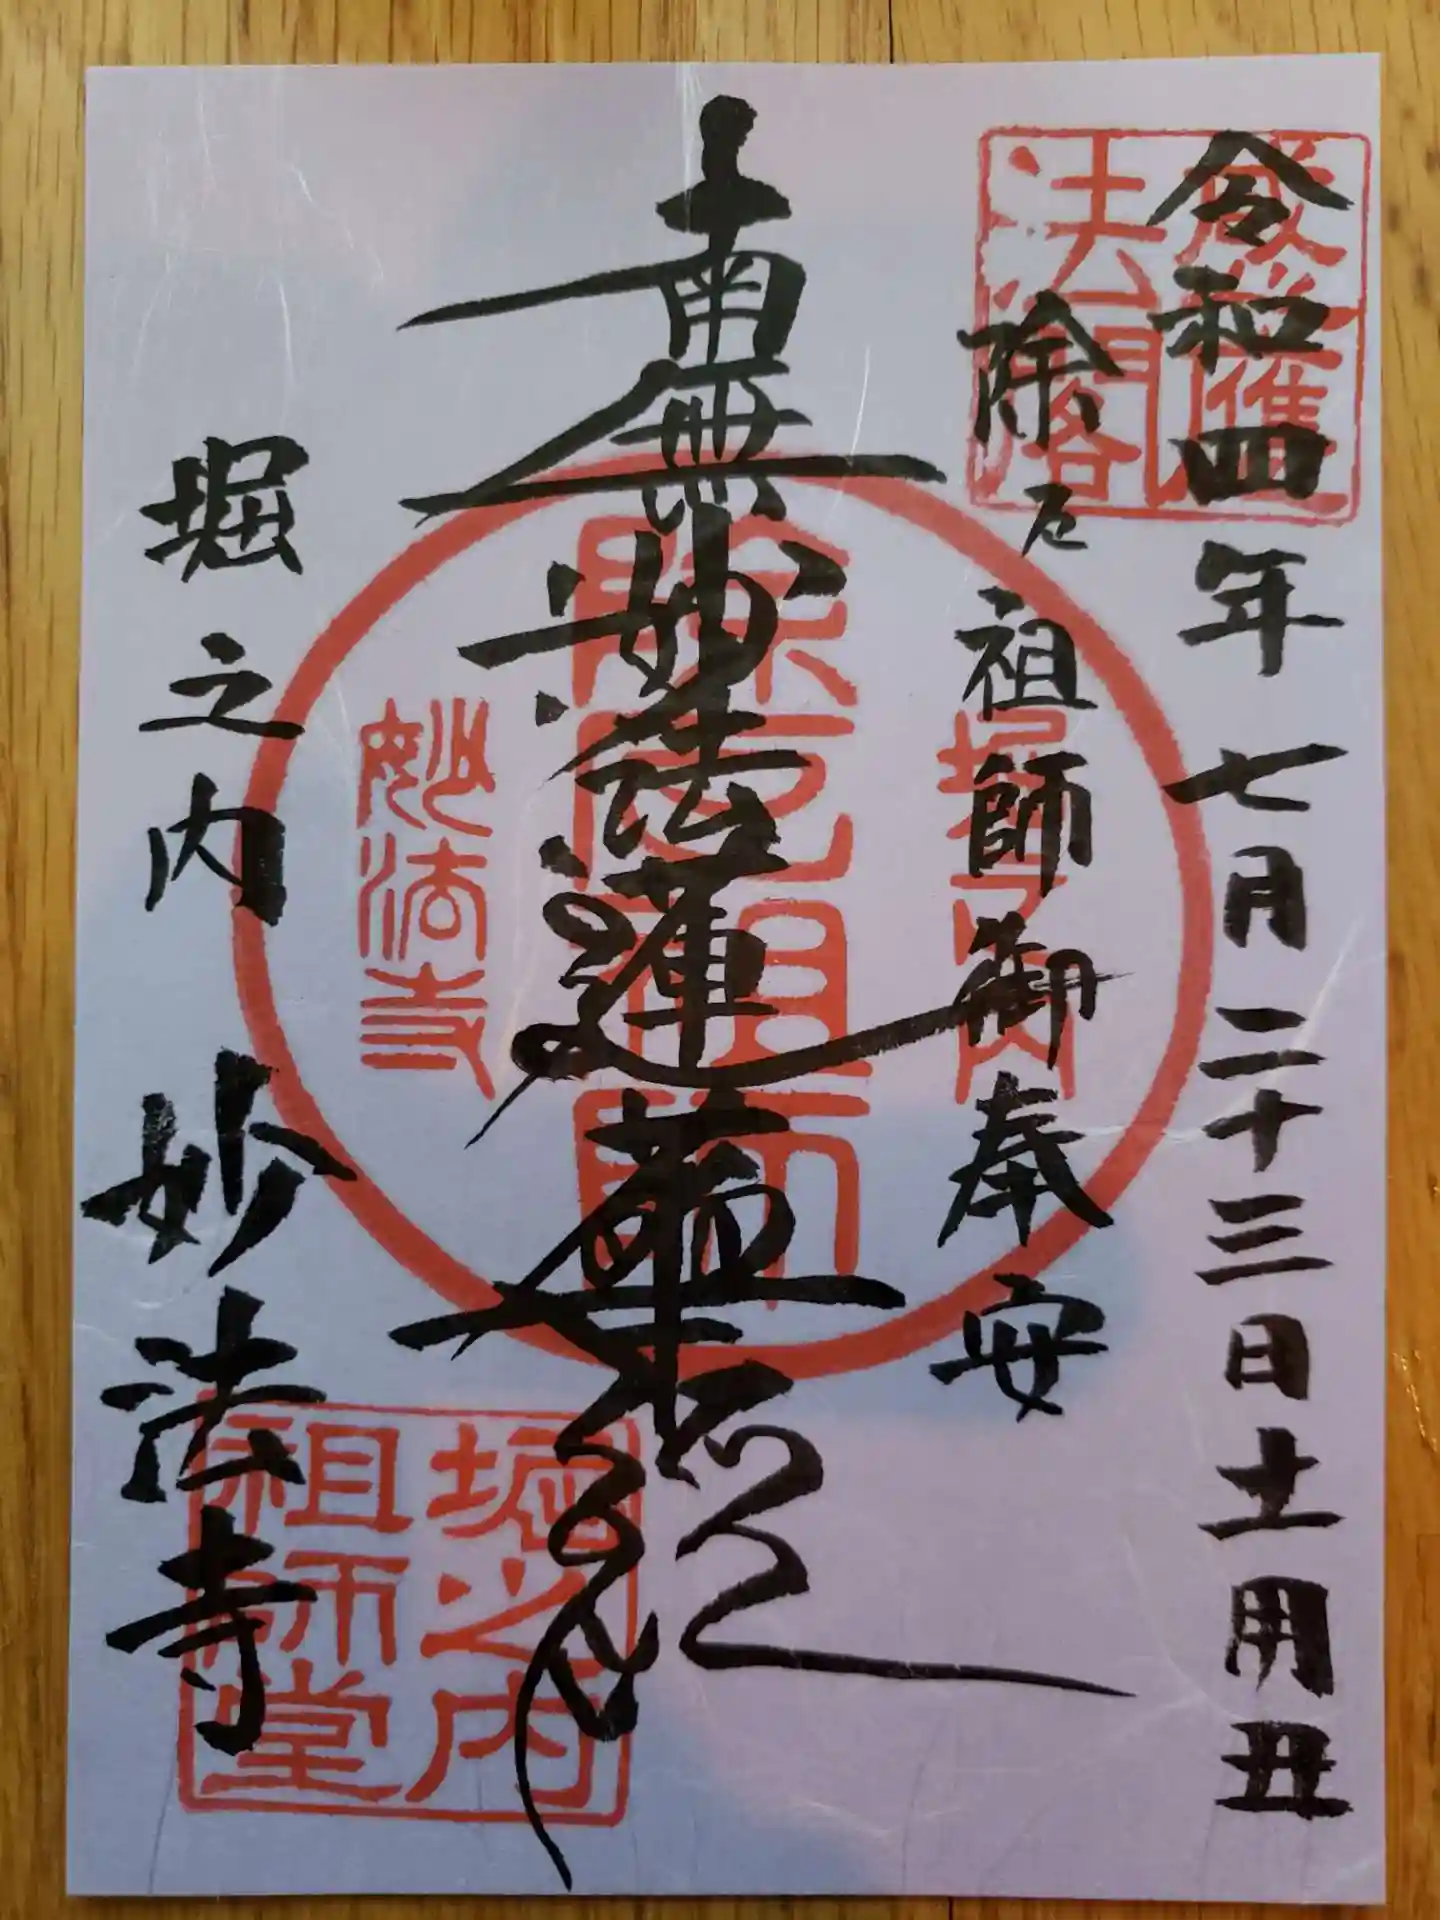 令和四年七月二十三日土用丑
除厄祖師御奉安
南無妙法蓮華経
堀之内 妙法寺
法閣
堀之内
除厄祖師
妙法寺
堀之内
祖師堂